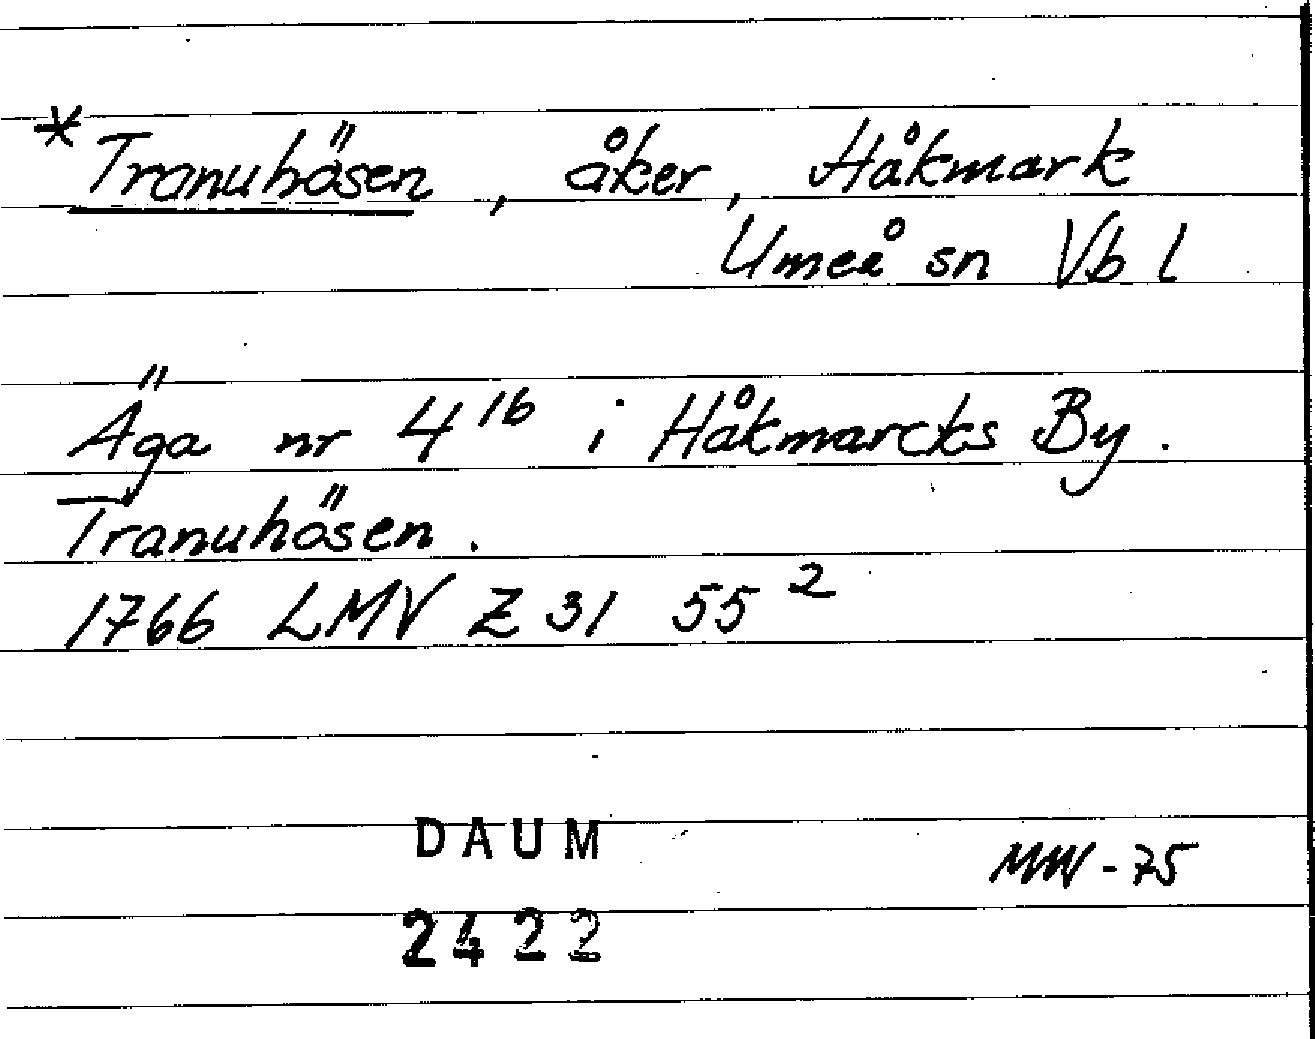 *Tranuhösen, åker, Håkmark
Umeå sn Vb l
Äga nr 4 16 i Håkmarcks By.
Tranuhösen.
1766 LMV Z 31 55 2
DAUM
MW-75
2422